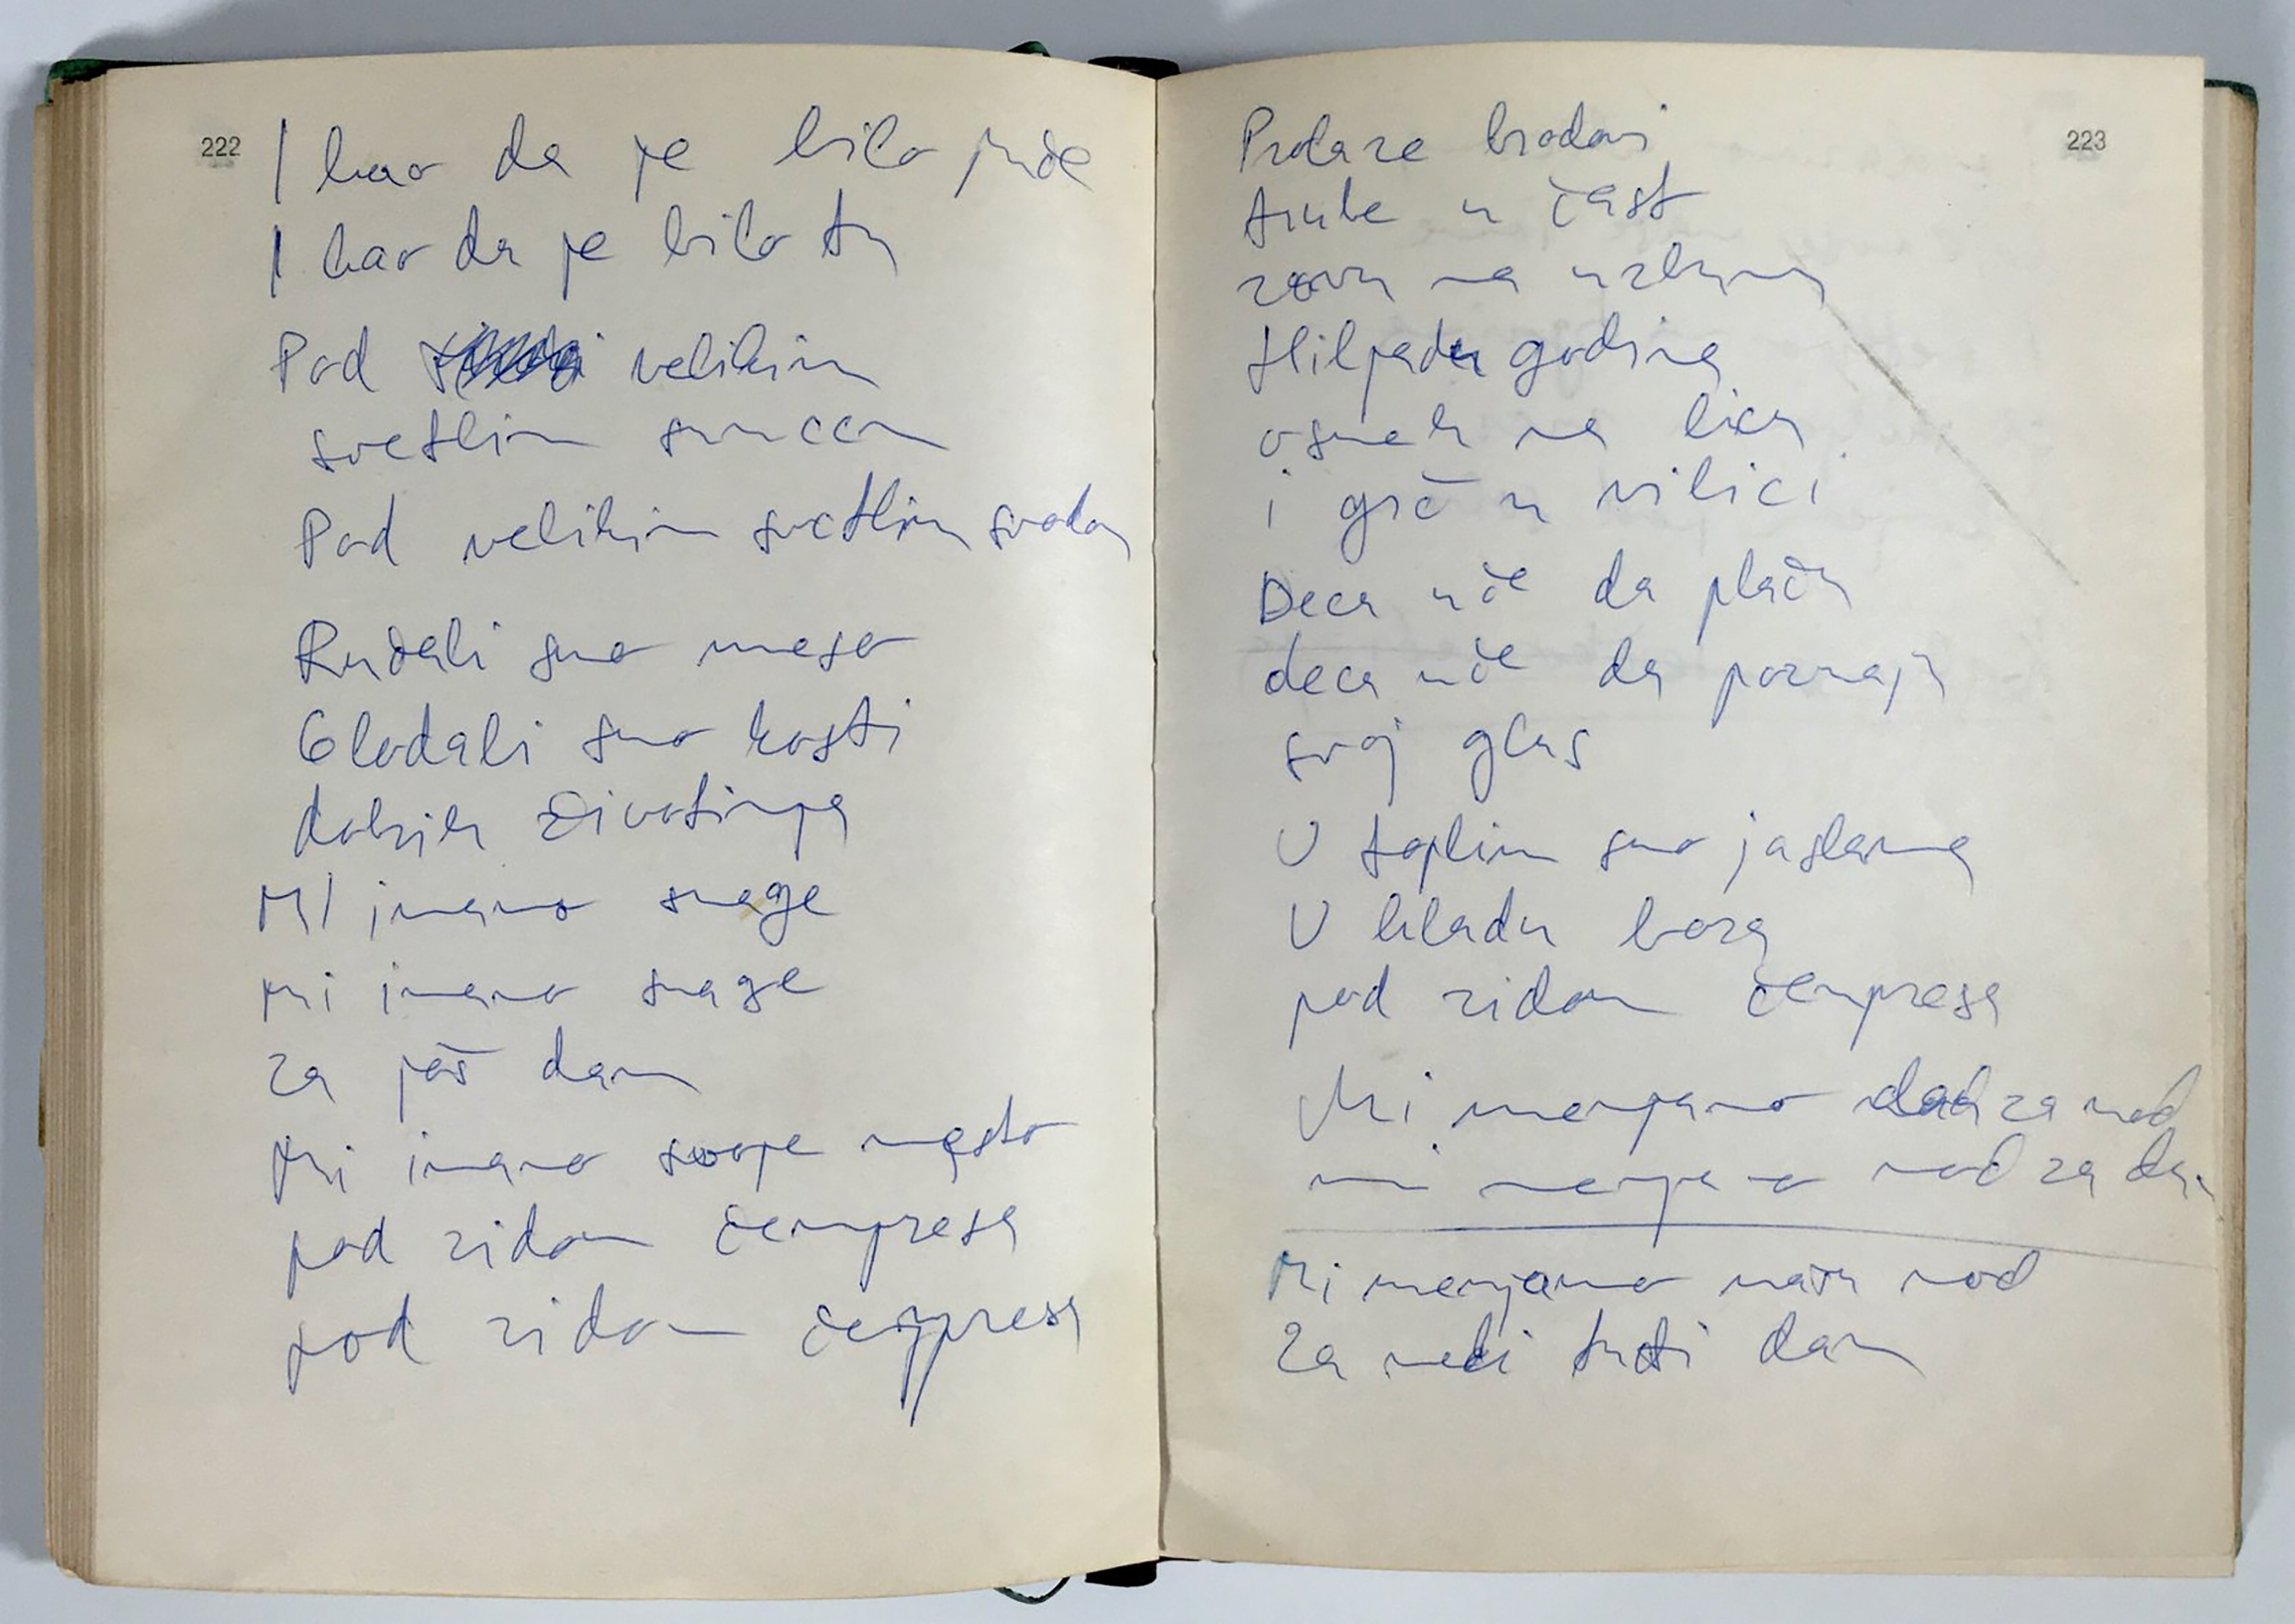 222
I kao da je bilo juče
I kao da je bilo tu
Pod velikim
svetlim suncem
Pod velikim svetlim svodom
Ručali smo meso
Glodali smo kosti
dobrih životinja
MI imamo snage
mi imamo snage
za još dan
Mi imamo svoje mesto
pod zidom čempresa
pod zidom čempresa
223
Prolaze brodovi
trube u čast
zovu na uzbunu
Hiljadu godina
osmeh na licu
i grč u vilici
Deca uče da plaču
deca uče da poznaju
svoj glas
U toplim smo jaslama
U hladu bora
pod zidom čempresa
Mi menjamo dan za noć
mi menjamo noć za dan
Mi menjamo našu noć
za neki tuđi dan